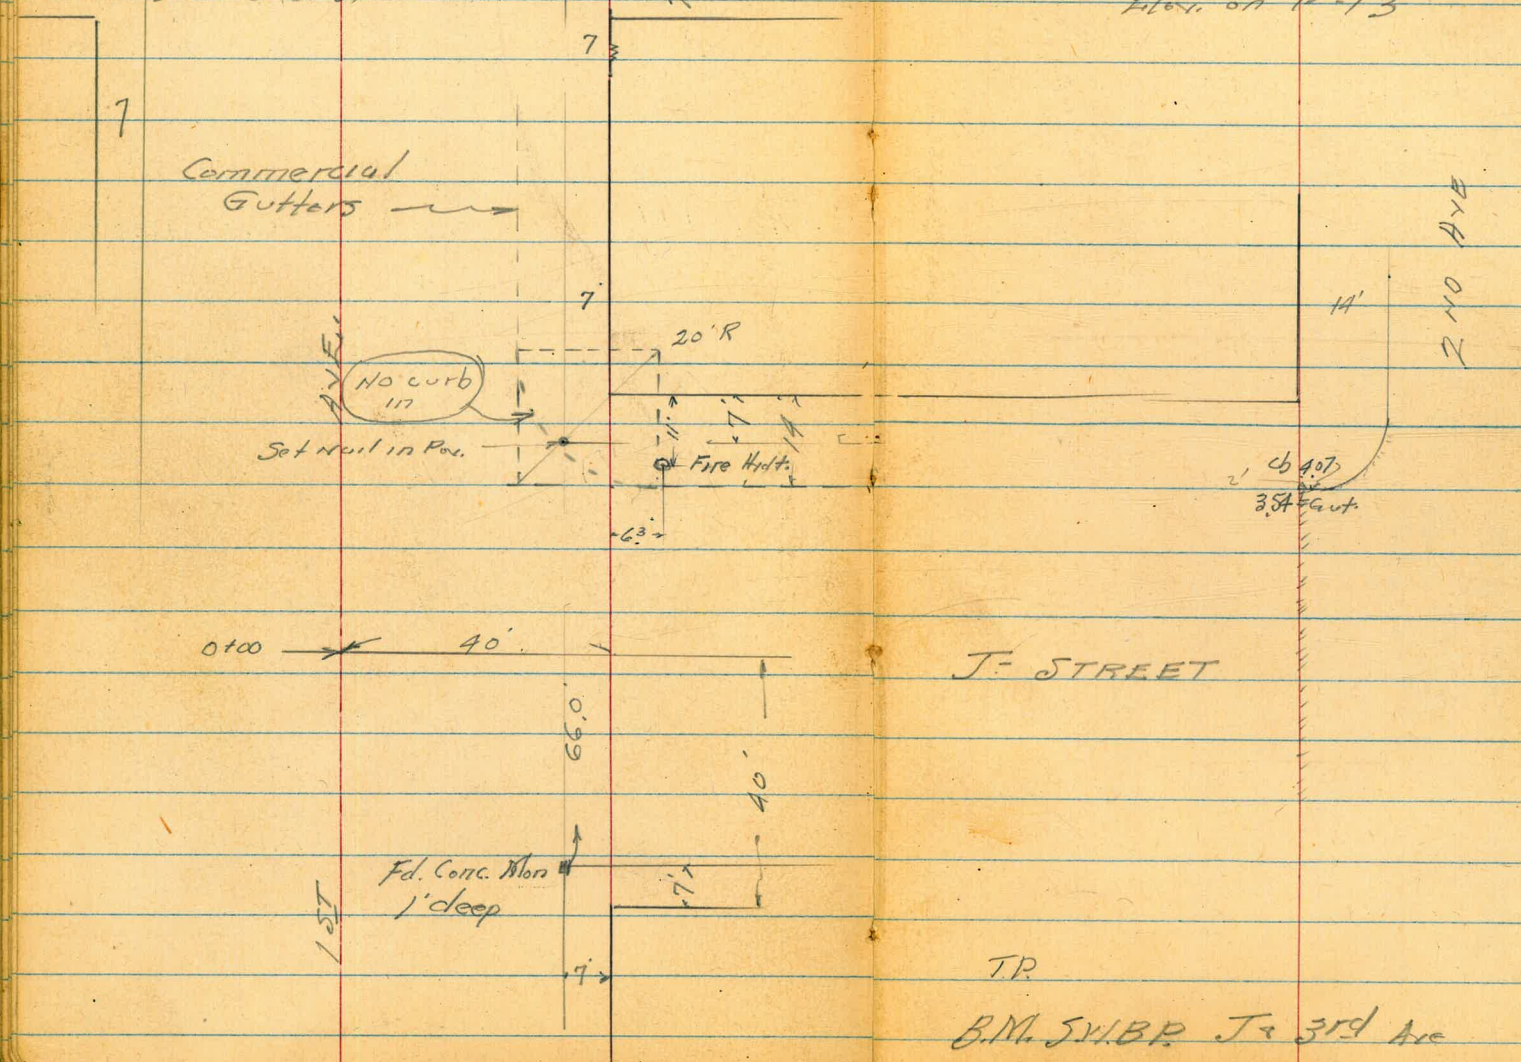 7
7
Commercial
Gutters
7
20' R
AVE.
No curb
in
Set nail in Pav.
11'
7'
14'
Fire Hydt.
6.3
0+00
40'
66.0'
40'
Fd. Conc. Mon
1' deep
7'
1 ST
7
2 ND AVE
14'
2'
cb 4.07
3.54 = Gut.
J - STREET
T.P.
B.M. S.W.B.P. J & 3rd Ave